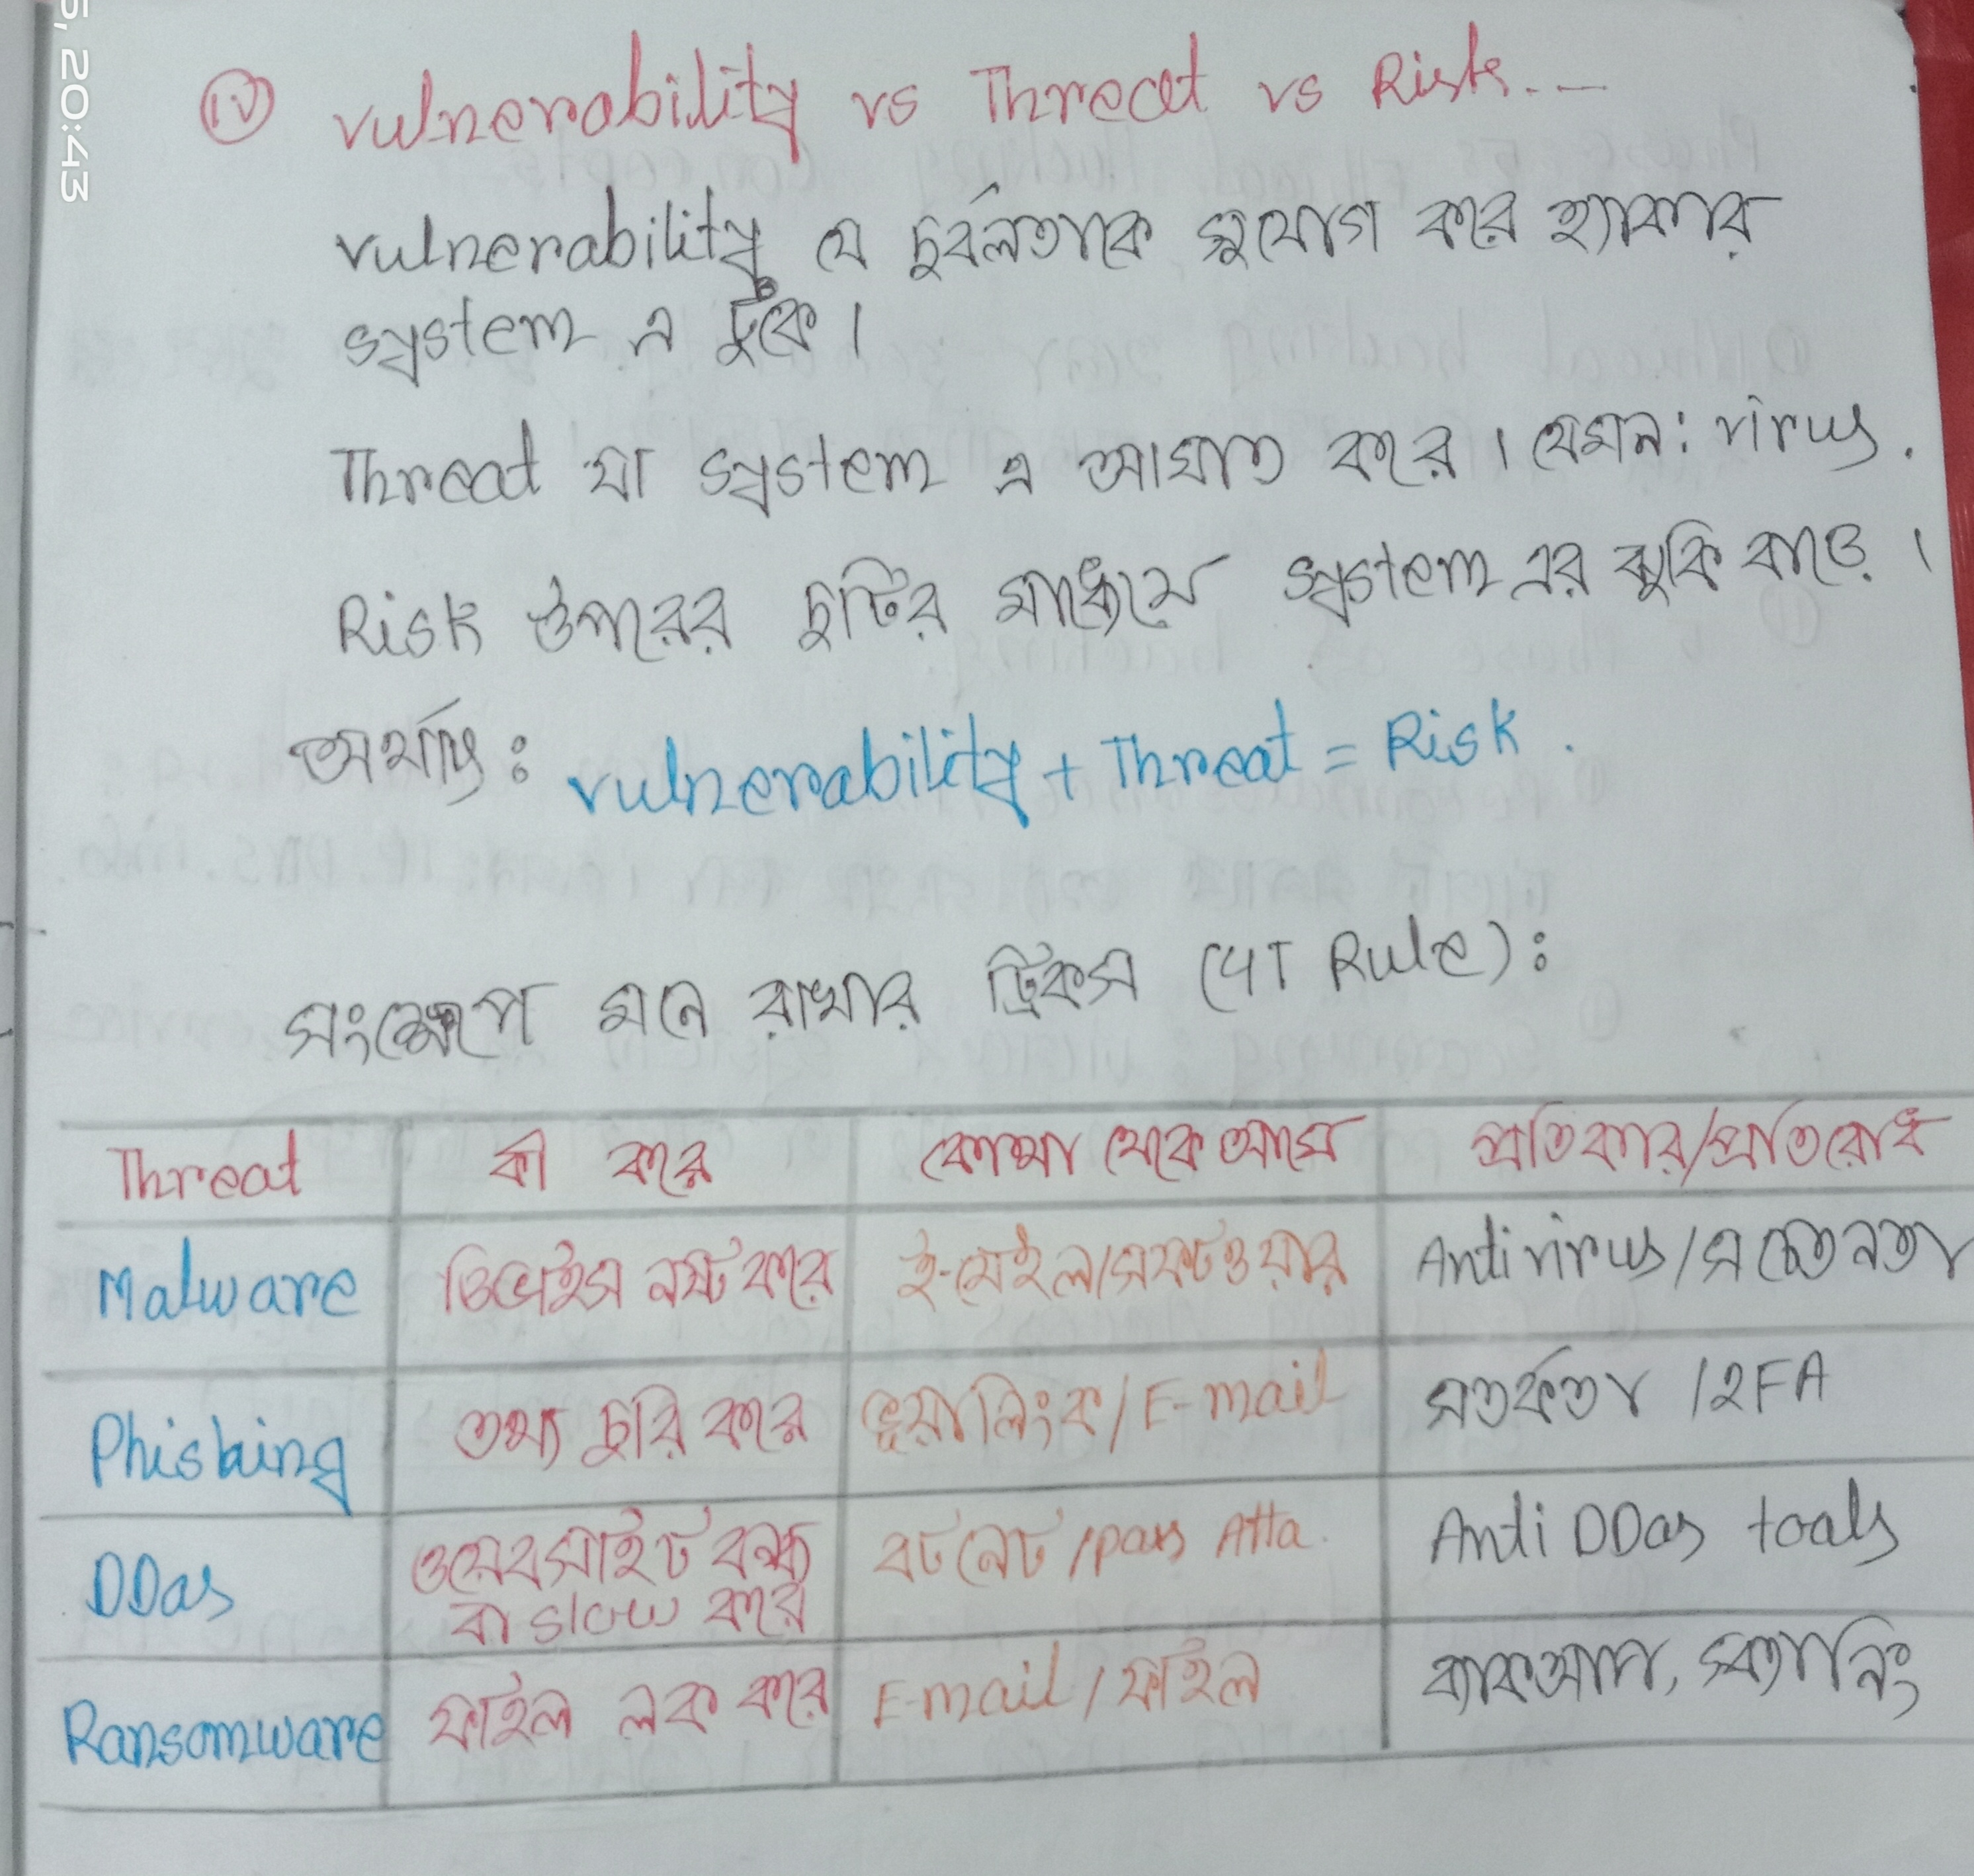 5, 20:43
(iv) vulnerability vs Threat vs Risk.—
vulnerability যে দুর্বলতাকে সুযোগ করে হ্যাকার
system এ ঢুকে।
Threat যা system এ আঘাত করে। যেমন: virus.
Risk উপরের দুটির মাধ্যমে system এর ঝুকি বাড়ে।
অর্থাৎ: vulnerability + Threat = Risk.
সংক্ষেপে মনে রাখার ট্রিকস (4T Rule):
Threat কী করে কোথা থেকে আসে প্রতিকার/প্রতিরোধ
Malware ডিভাইস নষ্ট করে ই-মেইল/সফটওয়ার Antivirus/সচেতনতা
Phishing তথ্য চুরি করে ভূয়া লিংক/E-mail সতর্কতা /2FA
DDas ওয়েবসাইট বন্ধ বটনেট/pass Atta. Anti DDas toals
বা slow করে
Ransomware ফাইল লক করে E-mail/ফাইল ব্যাকআপ, স্ক্যানিং